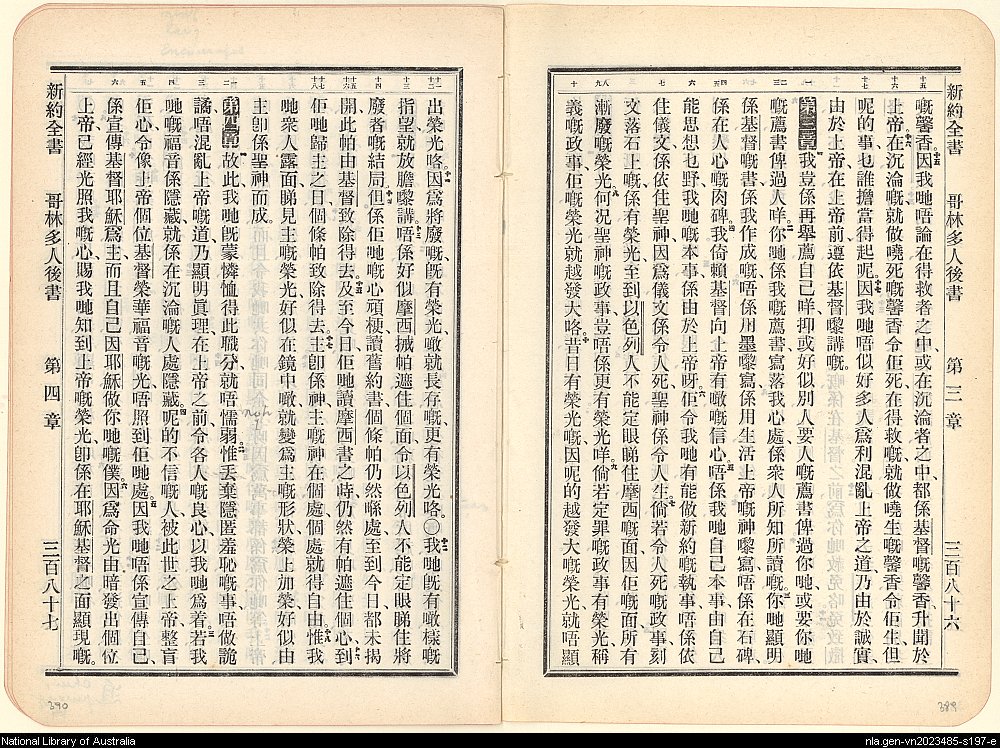 新約全書 哥林多人後書 第三章 三百八十六
嘅馨香因我哋唔論在得救者之中或在沉淪者之中都係基督嘅馨香升聞於
上帝在沉淪嘅就做嘵死嘅馨香令佢死在得救嘅就做嘵生嘅馨香令佢生但
呢的事乜誰擔當得起呢因我哋唔似好多人爲利混亂上帝之道乃由於誠實
由於上帝在上帝前遵依基督嚟講嘅。
第三章我豈係再舉薦自己咩抑或好似別人要人嘅薦書俾過你哋或要你哋
嘅薦書俾過人咩你哋係我嘅薦書寫落我心處係衆人所知所讀嘅你哋顯明
係基督嘅書係我作成嘅唔係用墨嚟寫係用生活上帝嘅神嚟寫唔係在石碑
係在人心嘅肉碑我倚賴基督向上帝有噉嘅信心唔係我哋自己本事由自己
能思想乜野我哋嘅本事係由於上帝呀佢令我哋有能做新約嘅執事唔係依
住儀文係依住聖神因爲儀文係令人死聖神係令人生倘若令人死嘅政事刻
文落石上嘅係有榮光至到以色列人不能定眼睇住摩西嘅面因佢面所有
漸廢嘅榮光何况聖神嘅政事豈唔係更有榮光咩倘若定罪嘅政事有榮光稱
義嘅政事佢嘅榮光就越發大咯昔日有榮光嘅因呢的越發大嘅榮光就唔顯
出榮光咯因爲將廢嘅旣有榮光噉就長存嘅更有榮光咯○我哋旣有噉樣嘅
指望就放膽嚟講唔係好似摩西搣帕遮住個面令以色列人不能定眼睇住將
廢者嘅結局但係佢哋嘅心頑梗讀舊約書個條帕仍然喺處至到今日都未揭
開此帕由基督致除得去及至今日佢哋讀摩西書之時仍然有帕遮住個心到
佢哋歸主之日個條帕致除得去主卽係神主嘅神在個處個處就得自由惟我
哋衆人露面睇見主嘅榮光好似在鏡中噉就變爲主嘅形狀榮上加榮好似由
主卽係聖神而成。
第四章故此我哋旣蒙憐恤得此職分就唔懦弱惟丢棄隱匿羞恥嘅事唔做詭
譎唔混亂上帝嘅道乃顯明眞理在上帝之前令各人嘅良心以我哋爲着若我
哋嘅福音係隱藏就係在沉淪嘅人處隱藏呢的不信嘅人被此世之上帝整盲
佢心令像上帝個位基督榮華福音嘅光唔照到佢哋處因我哋唔係宣傳自己
係宣傳基督耶穌爲主而且自己因耶穌做你哋嘅僕因爲命光由暗發出個位
上帝已經光照我嘅心賜我哋知到上帝嘅榮光卽係在耶穌基督之面顯現嘅。
新約全書 哥林多人後書 第四章 三百八十七
390
389
National Library of Australia
nla.gen-vn2023485-s197-e